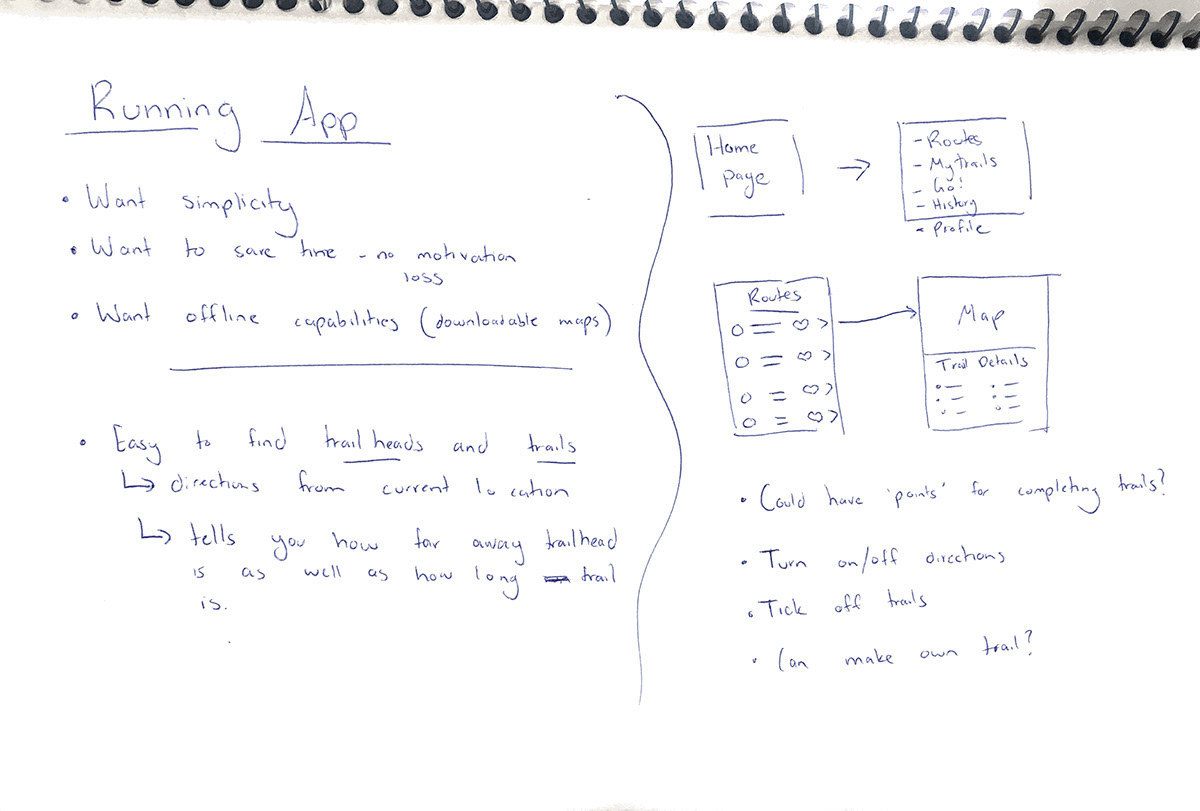 Running App
• Want simplicity
• Want to save time - no motivation
loss
• Want offline capabilities (downloadable maps)
• Easy to find trail heads and trails
↳ directions from current location
↳ tells you how far away trailhead
is as well as how long trail
is.
Home
page
- Routes
- My trails
- Go!
- History
- Profile
Routes
Map
Trail Details
• Could have 'points' for completing trails?
• Turn on/off directions
• Tick off trails
• Can make own trail?